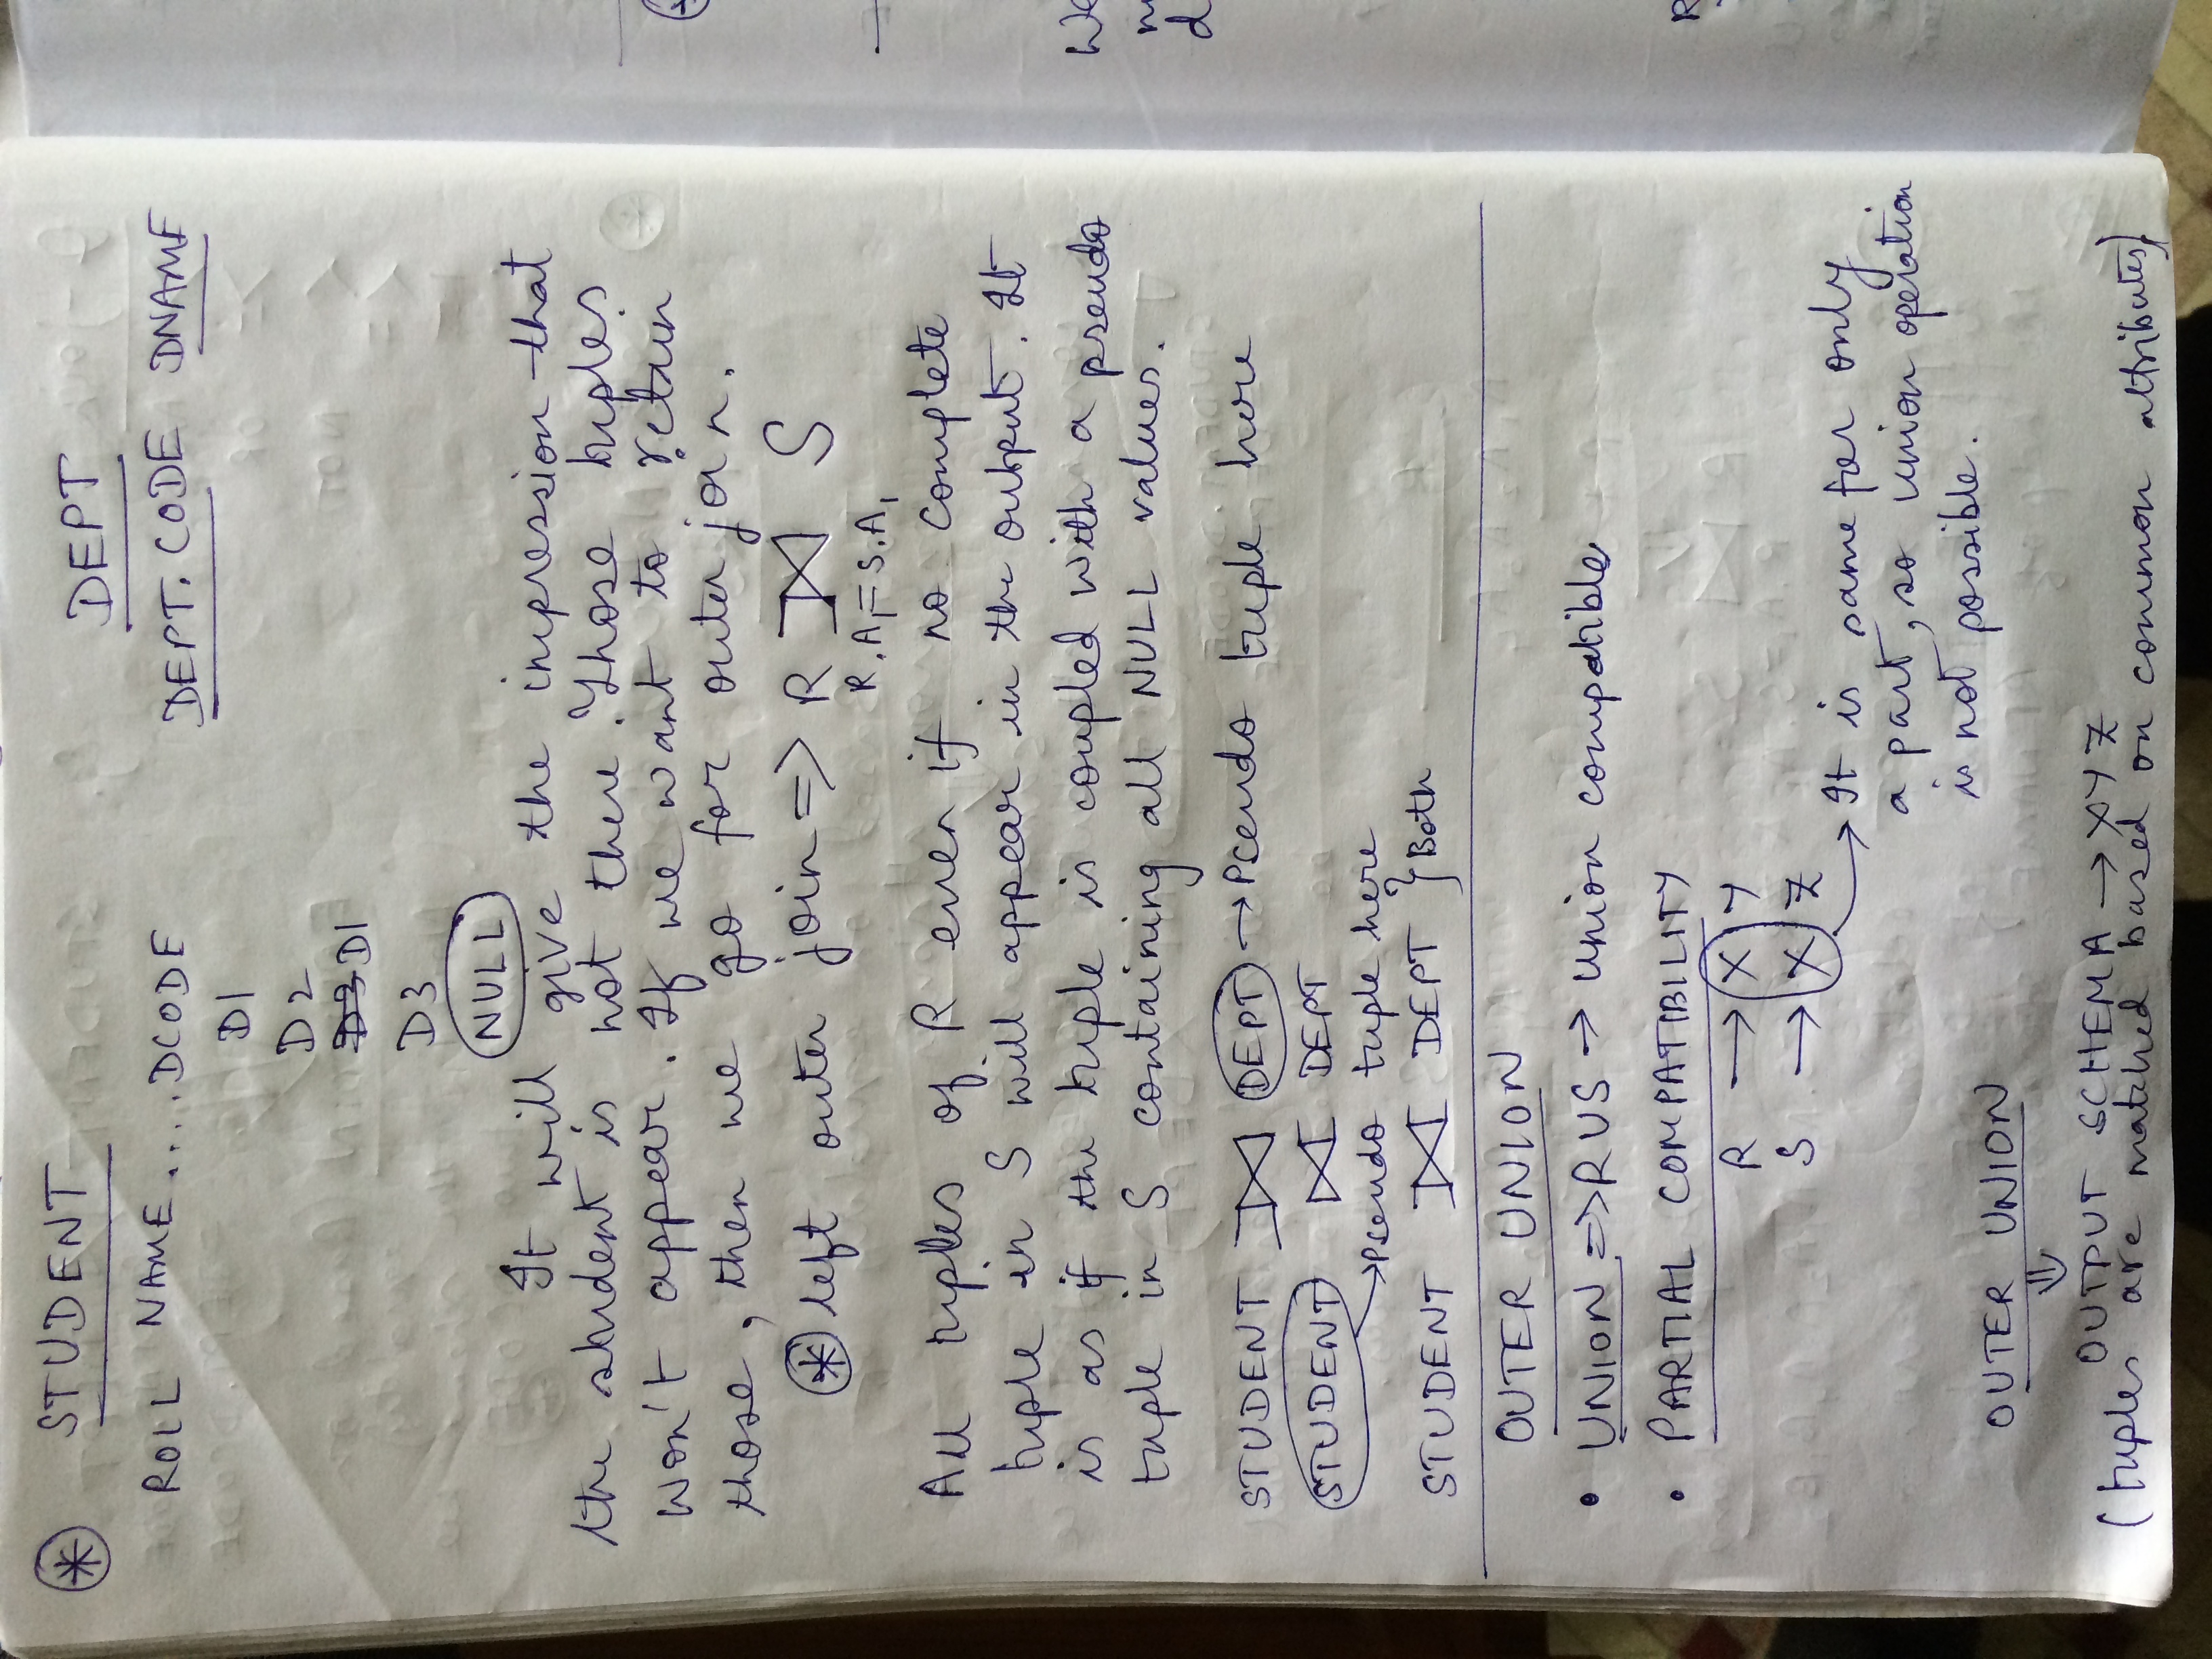 * STUDENT DEPT
ROLL NAME .... DCODE DEPT. CODE DNAME
D1
D2
D3 D1
D3
NULL
It will give the impression that
the student is not there. Those tuples
won't appear. If we want to retain
those, then we go for outer join.
* left outer join => R ⟕ S
R.A₁=S.A₁
All tuples of R even if no complete
tuple in S will appear in the output. It
is as if the tuple is coupled with a pseudo
tuple in S containing all NULL values.
STUDENT ⟕ DEPT → Pseudo tuple here
STUDENT ⟖ DEPT
→ Pseudo tuple here
STUDENT ⟗ DEPT } Both
OUTER UNION
• UNION => R U S → Union compatible
• PARTIAL COMPATIBILITY
R → X Y
S → X Z
→ It is same for only
a part, so union operation
is not possible.
OUTER UNION
⇓
OUTPUT SCHEMA → X Y Z
(tuples are matched based on common attributes)